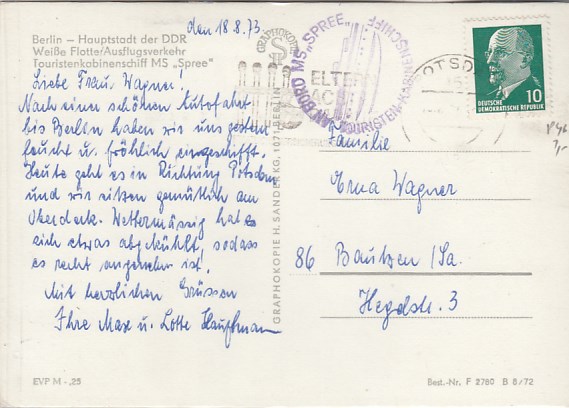 den 18.8.73
Berlin — Hauptstadt der DDR
Weiße Flotte/Ausflugsverkehr
Touristenkabinenschiff MS „Spree“
Liebe Frau Wagner!
Nach einer schönen Autofahrt
bis Berlin haben wir uns gestern
feucht u. fröhlich eingeschifft.
Heute geht es in Richtung Potsdam
und wir sitzen gemütlich am
Oberdeck. Wettermässig hat es
sich etwas abgekühlt, sodass
es recht angenehm ist.
Mit herzlichen Grüssen
Ihre Max u. Lotte Hauffmann
EVP M -,25
GRAPHOKOPIE H. SANDER KG, 1071 BERLIN
GRAPHOKOPIE
AN BORD MS „SPREE“
TOURISTEN-KABINENSCHIFF
ELTERN
AC
POTSD
10
DEUTSCHE
DEMOKRATISCHE REPUBLIK
Familie
Erna Wagner
86 Bautzen/Sa.
Hegelstr. 3
Best.-Nr. F 2780 B 8/72